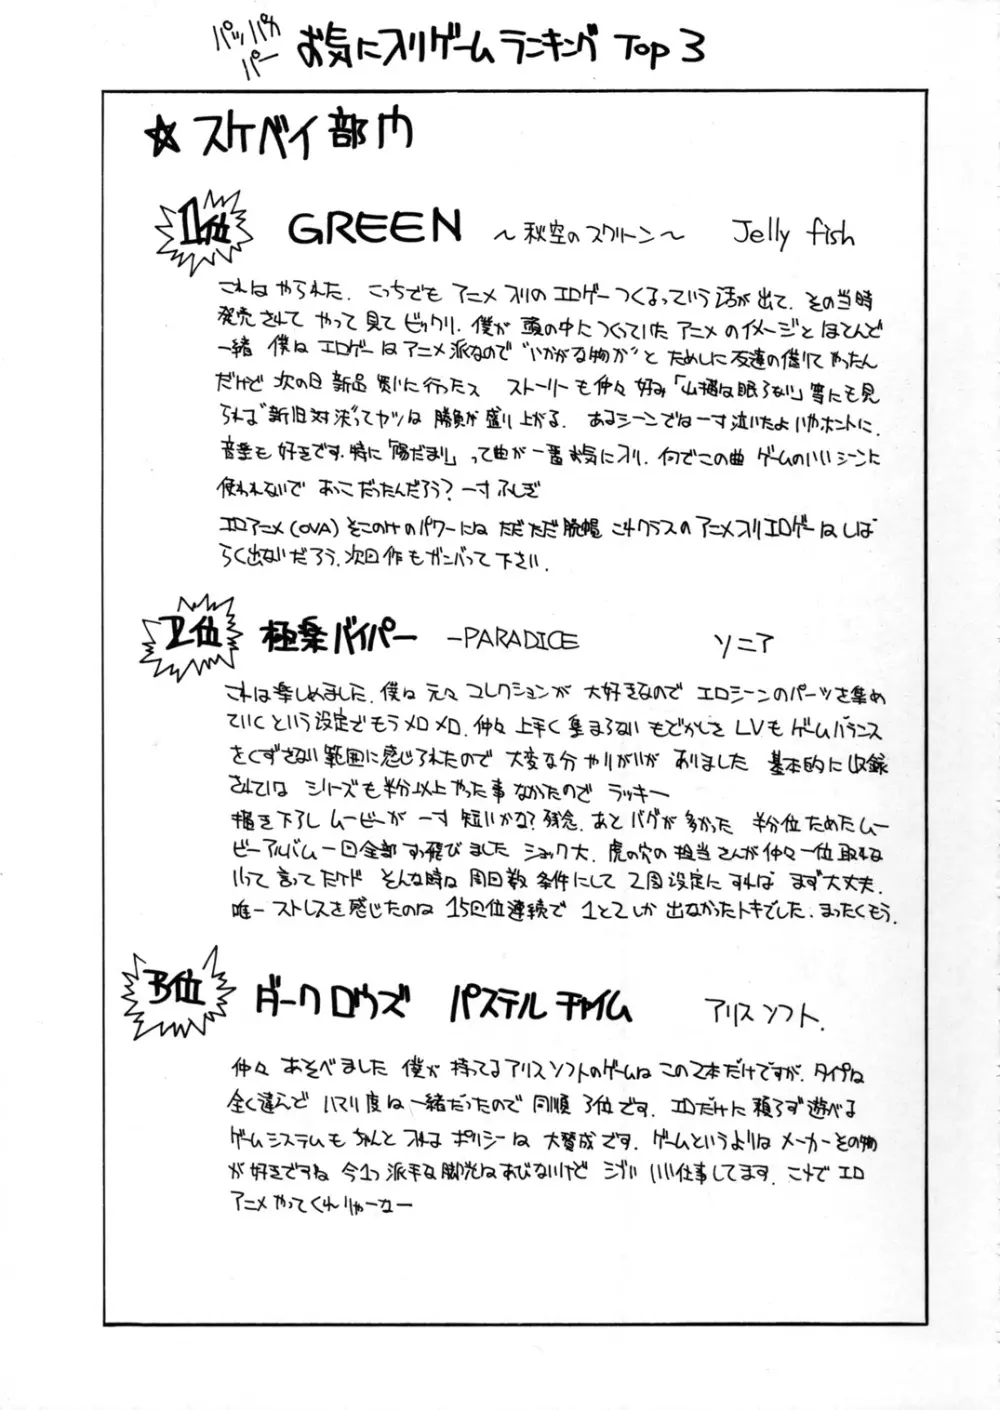 パッパカパー お気に入りゲームランキング Top 3
☆スケベイ部門
1位 GREEN ～秋空のスクリーン～ Jelly fish
これは やられた。こっちでも アニメ入りのエロゲーつくるっていう話が出て、その当時
発売されて やって見て ビックリ。僕が 頭の中につくっていた アニメのイメージとほとんど
一緒 僕は エロゲーは アニメ派なので"いかがな物か"と ためしに友達の借りて やったん
だけど 次の日 新品 買いに行ったス ストーリーも仲々 好み 「山猫は眠らない」等にも見
られる"新旧対決"ってヤツは 勝負が盛り上がる。あるシーンでは一寸泣いたよ いやホントに。
音楽も 好きです。特に「陽だまり」って曲が一番お気に入り。何でこの曲 ゲームのいいシーンに
使われないで あっこだったんだろう？一寸ふしぎ
エロアニメ(OVA)そこのけのパワーには ただただ脱帽 これクラスのアニメ入りエロゲーはしば
らく出ないだろう。次回作もガンバって下さい。
2位 極楽バイパー -PARADICE ソニア
これは楽しめました。僕は 元々 コレクションが 大好きなので エロシーンのパーツを集め
ていくという設定でもうメロメロ。仲々 上手く集まらない もどかしさ LVも ゲームバランス
をくずさない範囲に感じられたので 大変な分 やりがいが ありました 基本的に収録
されている シリーズも半分以上やった事なかったので ラッキー
描き下ろし ムービーが 一寸 短いかな？残念。あと バグが多かった 半分位ためたムー
ビーアルバム一回全部すっ飛びました ショック大。虎の穴の担当さんが仲々一位取れな
いって言ってたケド そんな時は 周回数 条件にして 2周設定にすれば まず大丈夫。
唯一ストレスを感じたのは 15回位連続で 1と2しか 出なかったトキでした。まったくもう。
3位 ダークロウズ パステルチャイム アリスソフト.
仲々 あそべました 僕が持ってるアリスソフトのゲームは この2本だけですが、タイプは
全く違んで ハマリ度は一緒だったので 同順3位です。エロだけに頼らず遊べる
ゲームシステムも ちゃんと入れる ポリシーは 大賛成です。ゲームというよりは メーカーその物
が好きですね 今1つ派手な脚光はあびないけど シブい いい仕事してます。これで エロ
アニメやってくれりゃーなー